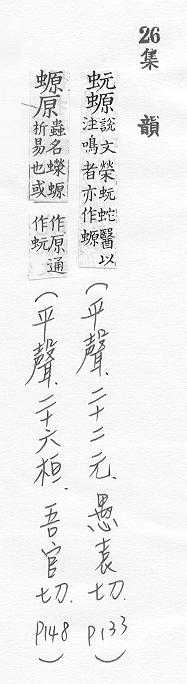 26集韻
蚖螈說文榮蚖蛇醫以注鳴者亦作螈(平聲.二十二元.愚袁切.P133)
螈原蟲名蠑螈蜥易也或作原通作蚖(平聲.二十六桓.吾官切.P148)